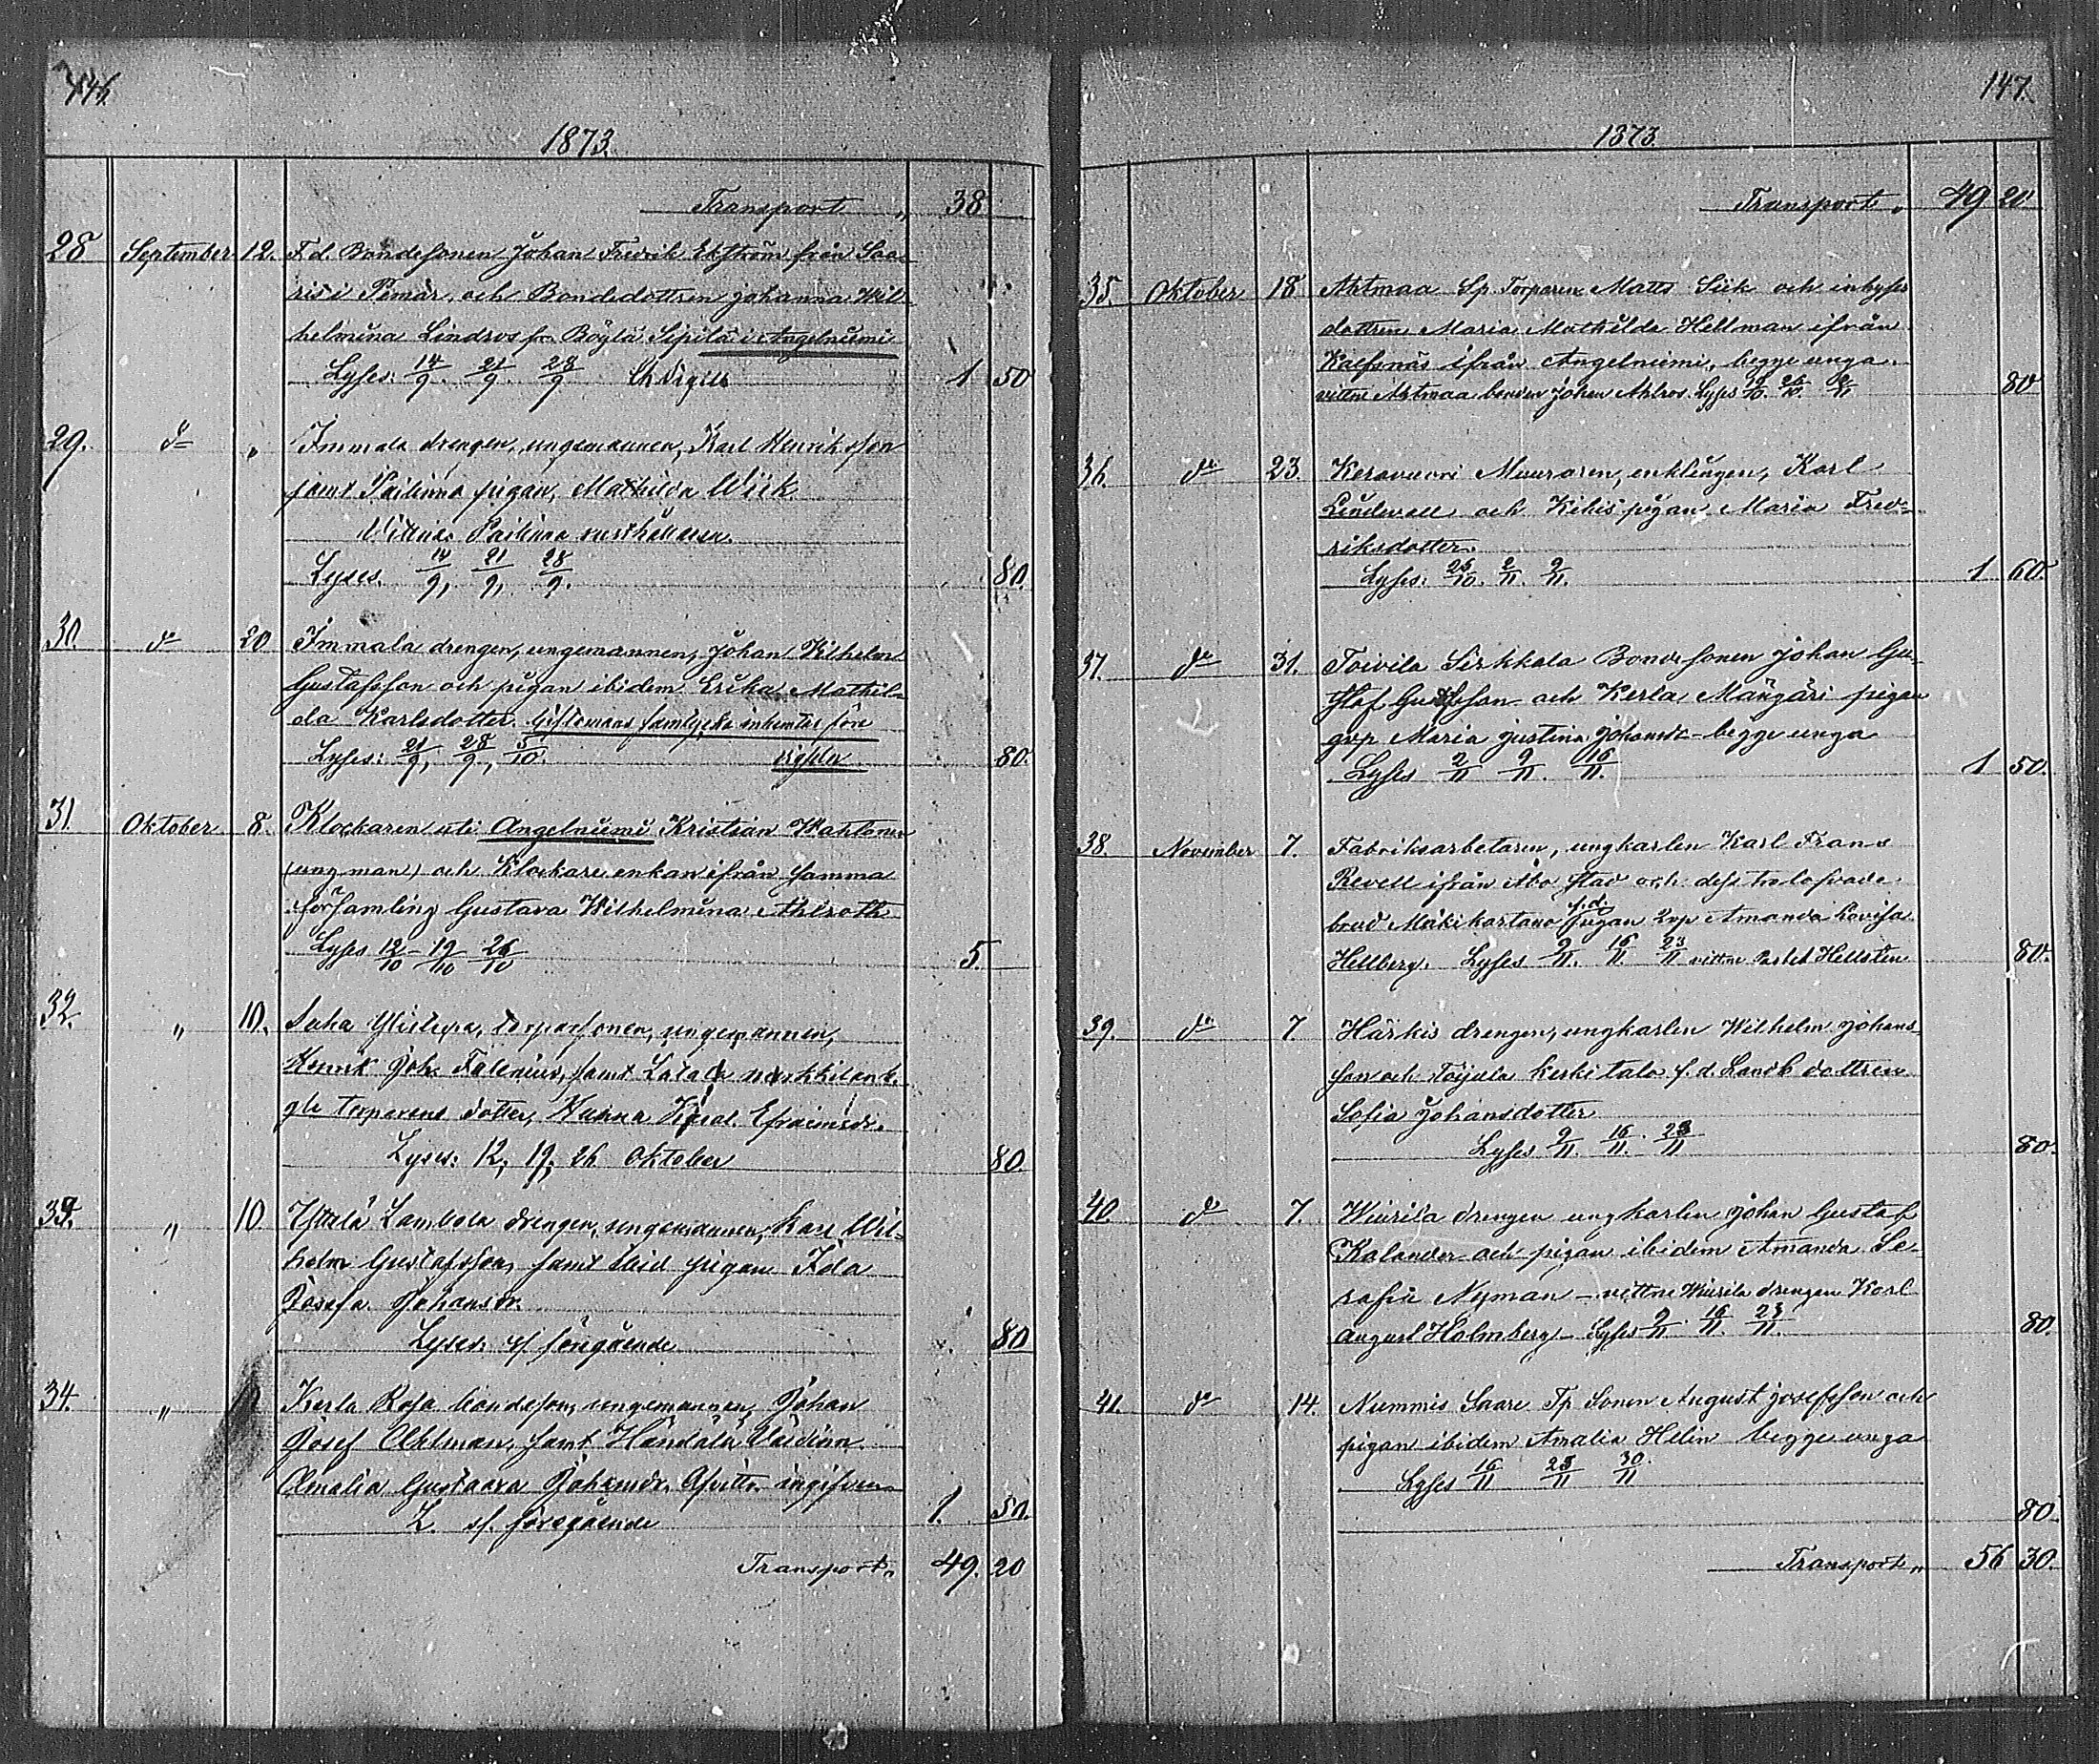 146.
1873.
Transport „ 38
28 September 12. F. d. Bondesonen Johan Fredrik Ekström från Saa-
ris i Pemar, och Bondedottren Johanna Wil-
helmina Lindros fr. Böylä Sipilä i Angelniemi
Lyses: 14/9. 21/9. 28/9 1 50
29. do „ Immala drengen, ungemannen, Karl Henriksson
samt Pailinna pigan, Mathilda Wiik
Vittne: Pailinna rusthållaren.
Lyses. 14/9, 21/9, 28/9. 80.
30. do 20 Immala drengen, ungemannen, Johan Vilhelm
Gustafsson och pigan ibidem Erika Mathil-
da Karlsdotter. Giftomans samtycke inhemtas före
Lyses: 21/9, 28/9, 5/10. vigseln 80.
31. Oktober 8. Klockaren uti Angelniemi Kristian Wahlman
(ungman) och Klockare enkan ifrån samma
församling Gustava Wilhelmina Ahlroth
Lyses 12/10 – 19/10 26/10 5.
32. „ 10. torparsonen, ungemannen,
Henrik Joh. Falenius, samt
torparens dotter, Efraimsdr.
Lyses: 12, 19, 26 Oktober 80.
33. „ 10 Lambola drengen, ungemannen, Karl Wil-
helm Gustafsson, samt pigan Ida
Josefa Johansdr.
Lyses: sf föregående 80
34. „ Kerla Rosa bondeson, ungemannen, Johan
Josef Ahlman, samt
Amalia Gustaava Johansdr.
L. sf. föregående 1. 50.
Transport „ 49. 20
147.
1873.
Transport „ 49 20
35. Oktober 18 Ahtmaa Sp. Torparen Matts Siik och inhyses
dottren Maria Mathilda Hellman ifrån
ifrån Angelniemi, begge unga.
vittne Ahtmaa bonden Johan Ahlros. Lyses 19/10. 26/10. 2/11 80
36. do 23. Keravuori Muuraren, enklingen, Karl
Lindevall och Kihis pigan Maria Fred-
riksdotter.
Lyses: 26/10. 2/11. 9/11. 1 60.
37. do 31. Toivila Sirkkala Bondesonen Johan Gu-
staf Gustafsson och Kerla Mängäri pigan
Maria Justina Johansdr – begge unga
Lyses 2/11 9/11. 16/11. 1 50.
38. November 7. Fabriksarbetaren, ungkarlen Karl Frans
Revell ifrån Åbo stad och dess trolofvade
brud Mäkikartano f.d. pigan Amanda Lovisa
Hellberg. Lyses 9/11. 16/11. 23/11 vittne Hellsten 80.
39. do 7. Härkis drengen, ungkarlen Wilhelm Johans-
son och Töijala Keskitalo f. d. dottren
Sofia Johansdotter
Lyses 9/11 16/11. 23/11 80.
40. do 7. Wiurila drengen ungkarlen Johan Gustaf
Kalander och pigan ibidem Amanda Se-
rafia Nyman – vittne Wiurila drengen Karl
August Holmberg – Lyses 9/11. 16/11. 23/11. 80.
41. do 14. Nummis Saare Tp Sonen August Josefsson och
pigan ibidem Amalia Helin begge unga
Lyses 16/11 23/11 30/11.
80.
Transport „ 56 30.